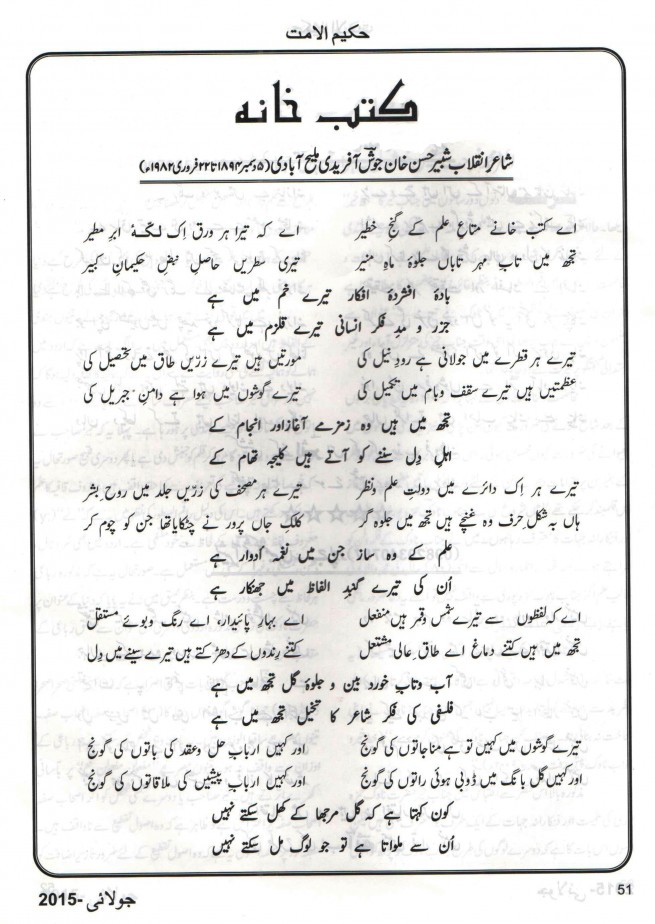 حکیم الامت
کتب خانہ
شاعرِ انقلاب شبیر حسن خان جوشؔ آفریدی ملیح آبادی (۵ دسمبر ۱۸۹۴ تا ۲۲ فروری ۱۹۸۲ء)
اے کتب خانے متاعِ علم کے گنجِ خطیر اے کہ تیرا ہر ورق اِک لکّۂ ابرِ مطیر
تجھ میں تابِ مہرِ تاباں جلوۂ ماہِ منیر تیری سطریں حاصلِ نبضِ حکیمانِ کبیر
بادۂ افشردۂ افکار تیرے خم میں ہے
جزر و مدِ فکرِ انسانی تیرے قلزم میں ہے
تیرے ہر قطرے میں جولانی ہے رودِ نیل کی مورتیں ہیں تیرے زرّیں طاق میں تحصیل کی
عظمتیں ہیں تیرے سقف و بام میں تکمیل کی تیرے گوشوں میں ہوا ہے دامنِ جبریل کی
تجھ میں ہیں وہ زمزمے آغاز اور انجام کے
اہلِ دِل سننے کو آتے ہیں کلیجہ تھام کے
تیرے ہر اِک دائرے میں دولتِ علم و نظر تیرے ہر مصحف کی زرّیں جلد میں روحِ بشر
ہاں بہ شکلِ حرف وہ غنچے ہیں تجھ میں جلوہ گر کلکِ جاں پرور نے چٹکایا تھا جن کو چوم کر
علم کے وہ ساز جن میں نغمۂ ادوار ہے
اُن کی تیرے گنبدِ الفاظ میں جھنکار ہے
اے کہ لفظوں سے تیرے شمس و قمر ہیں منفعل اے بہارِ پائیدار، اے رنگ و بوئے مستقل
تجھ میں ہیں کتنے دماغ اے طاقِ عالی مشتعل کتنے رِندوں کے دھڑکتے ہیں تیرے سینے میں دِل
آب و تابِ خورد بین و جلوۂ گل تجھ میں ہے
فلسفی کی فِکر شاعر کا تخیل تجھ میں ہے
تیرے گوشوں میں کہیں تو ہے مناجاتوں کی گونج اور کہیں اربابِ حل و عقد کی باتوں کی گونج
اور کہیں گل بانگ میں ڈوبی ہوئی راتوں کی گونج اور کہیں اربابِ پیشیں کی ملاقاتوں کی گونج
کون کہتا ہے کہ گل مرجھا کے کھل سکتے نہیں
اُن سے ملواتا ہے تو جو لوگ مل سکتے نہیں
51
جولائی -2015